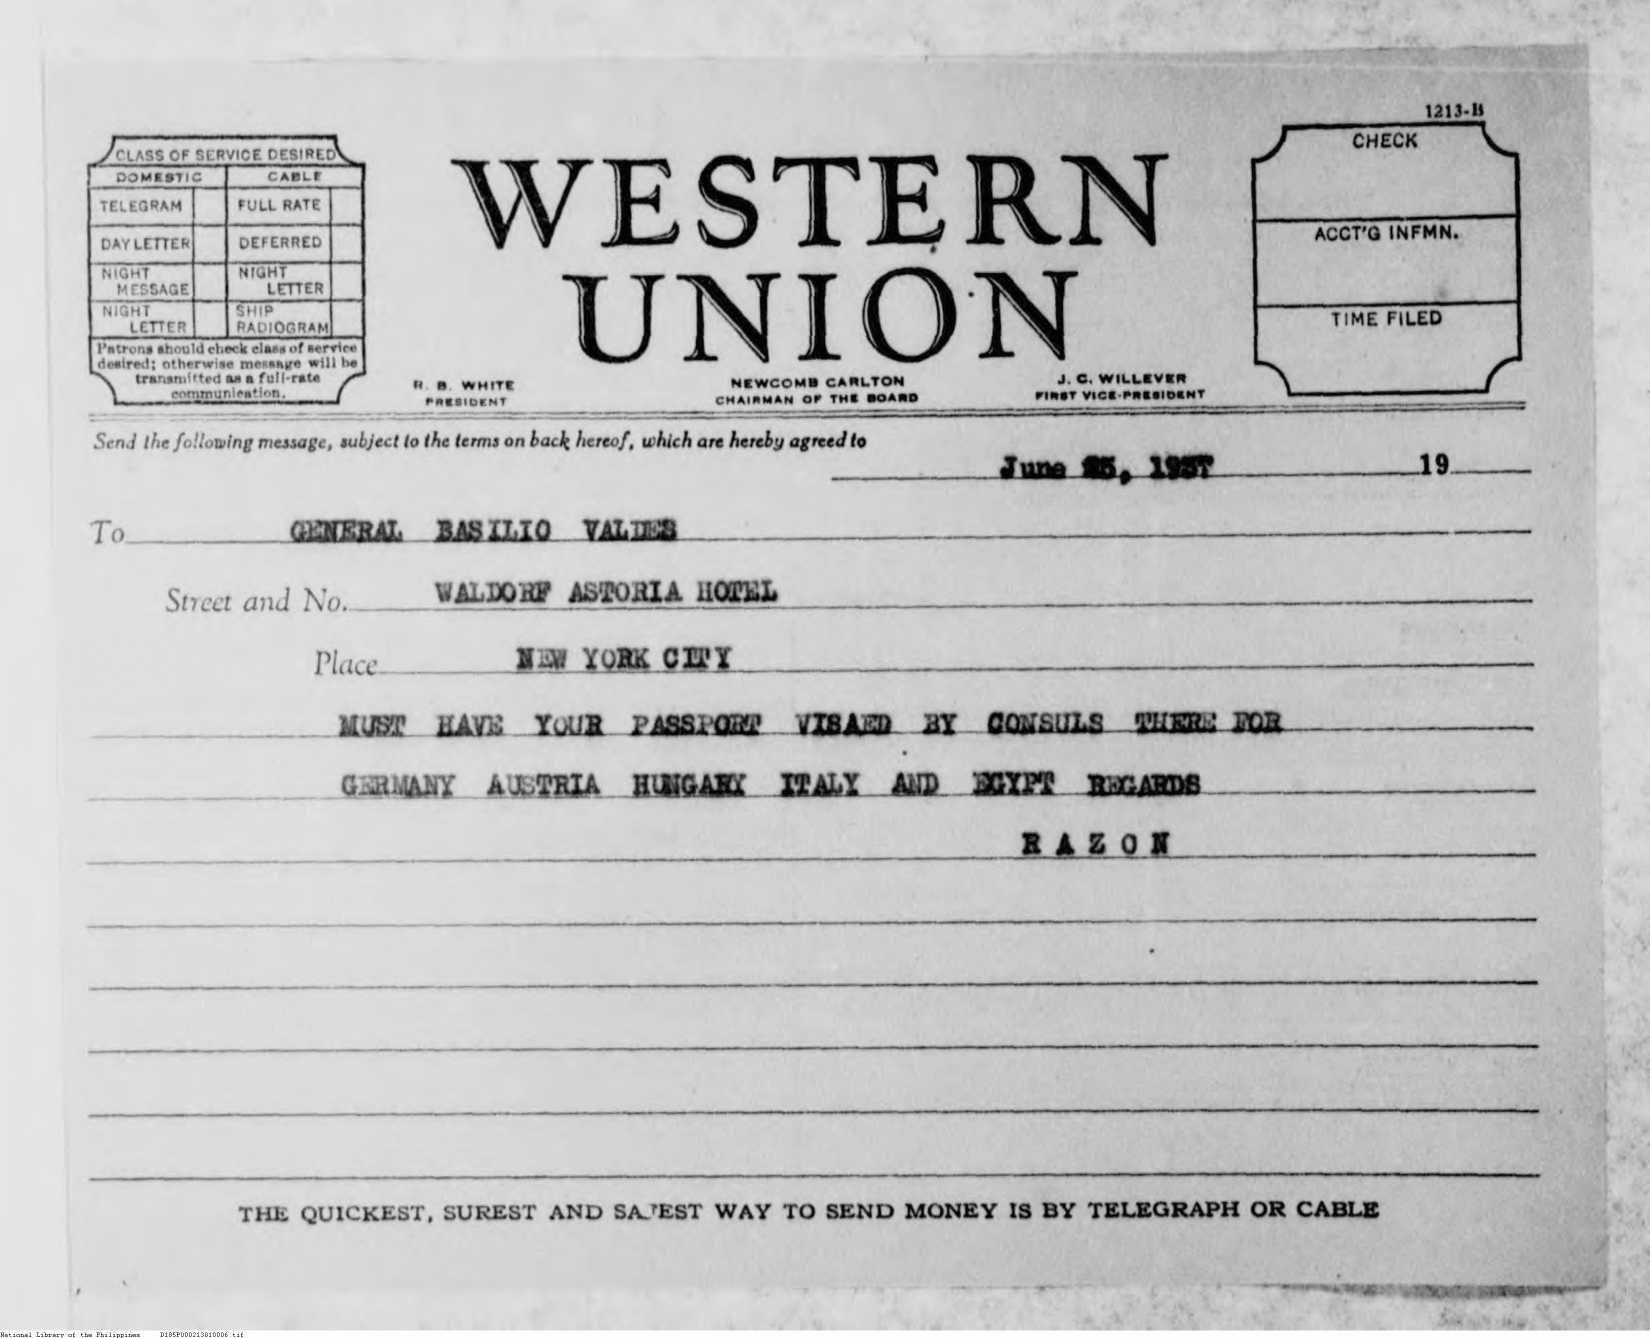 1213-B
CLASS OF SERVICE DESIRED
DOMESTIC CABLE
TELEGRAM FULL RATE
DAY LETTER DEFERRED
NIGHT MESSAGE NIGHT LETTER
NIGHT LETTER SHIP RADIOGRAM
Patrons should check class of service
desired; otherwise message will be
transmitted as a full-rate
communication.
WESTERN
UNION
R. B. WHITE
PRESIDENT
NEWCOMB CARLTON
CHAIRMAN OF THE BOARD
J. C. WILLEVER
FIRST VICE-PRESIDENT
CHECK
ACCT'G INFMN.
TIME FILED
Send the following message, subject to the terms on back hereof, which are hereby agreed to
June 25, 1937 19
To GENERAL BASILIO VALDES
Street and No. WALDORF ASTORIA HOTEL
Place NEW YORK CITY
MUST HAVE YOUR PASSPORT VISAED BY CONSULS THERE FOR
GERMANY AUSTRIA HUNGARY ITALY AND EGYPT REGARDS
RAZON
THE QUICKEST, SUREST AND SAFEST WAY TO SEND MONEY IS BY TELEGRAPH OR CABLE
National Library of the Philippines D185P000213810006.tif